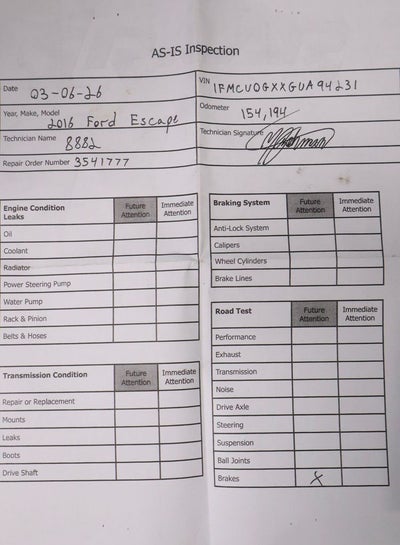 AS-IS Inspection
Date 03-06-26
VIN 1FMCU0GXXGUA94231
Year, Make, Model 2016 Ford Escape
Odometer 154,194
Technician Name 8882
Technician Signature
Repair Order Number 3541777
Engine Condition Future Attention Immediate Attention
Leaks
Oil
Coolant
Radiator
Power Steering Pump
Water Pump
Rack & Pinion
Belts & Hoses
Transmission Condition Future Attention Immediate Attention
Repair or Replacement
Mounts
Leaks
Boots
Drive Shaft
Braking System Future Attention Immediate Attention
Anti-Lock System
Calipers
Wheel Cylinders
Brake Lines
Road Test Future Attention Immediate Attention
Performance
Exhaust
Transmission
Noise
Drive Axle
Steering
Suspension
Ball Joints
Brakes X